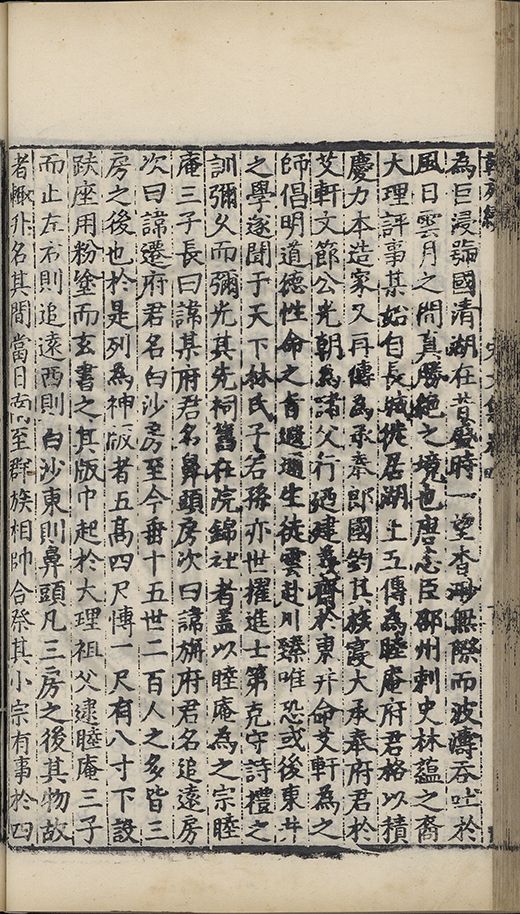 為巨浸號國清湖在昔盛時一望杳渺無際而波濤吞吐於
風日雲月之間真勝絕之境也唐忠臣邵州刺史林蘊之裔
大理評事某始自長城徙居湖上五傳為睦庵府君格以積
慶力本造家又再傳為承奉郎國鈞其族寖大承奉府君於
艾軒文節公光朝為諸父行廼建義齋於東井命艾軒為之
師倡明道德性命之旨遐邇生徒雲赴川臻唯恐或後東井
之學遂聞于天下林氏子若孫亦世擢進士第克守詩禮之
訓彌久而彌光其先祠舊在浣錦社者盖以睦庵為之宗睦
庵三子長曰諱某府君名鼻頭房次曰諱旃府君名追遠房
次曰諱遷府君名白沙房至今垂十五世二百人之多皆三
房之後也於是列為神版者五高四尺博一尺有八寸下設
趺座用粉塗而玄書之其版中起於大理祖父逮睦庵三子
而止左右則追遠西則白沙東則鼻頭凡三房之後其物故
者輙列名其間當日南至群族相帥合祭其小宗有事於四